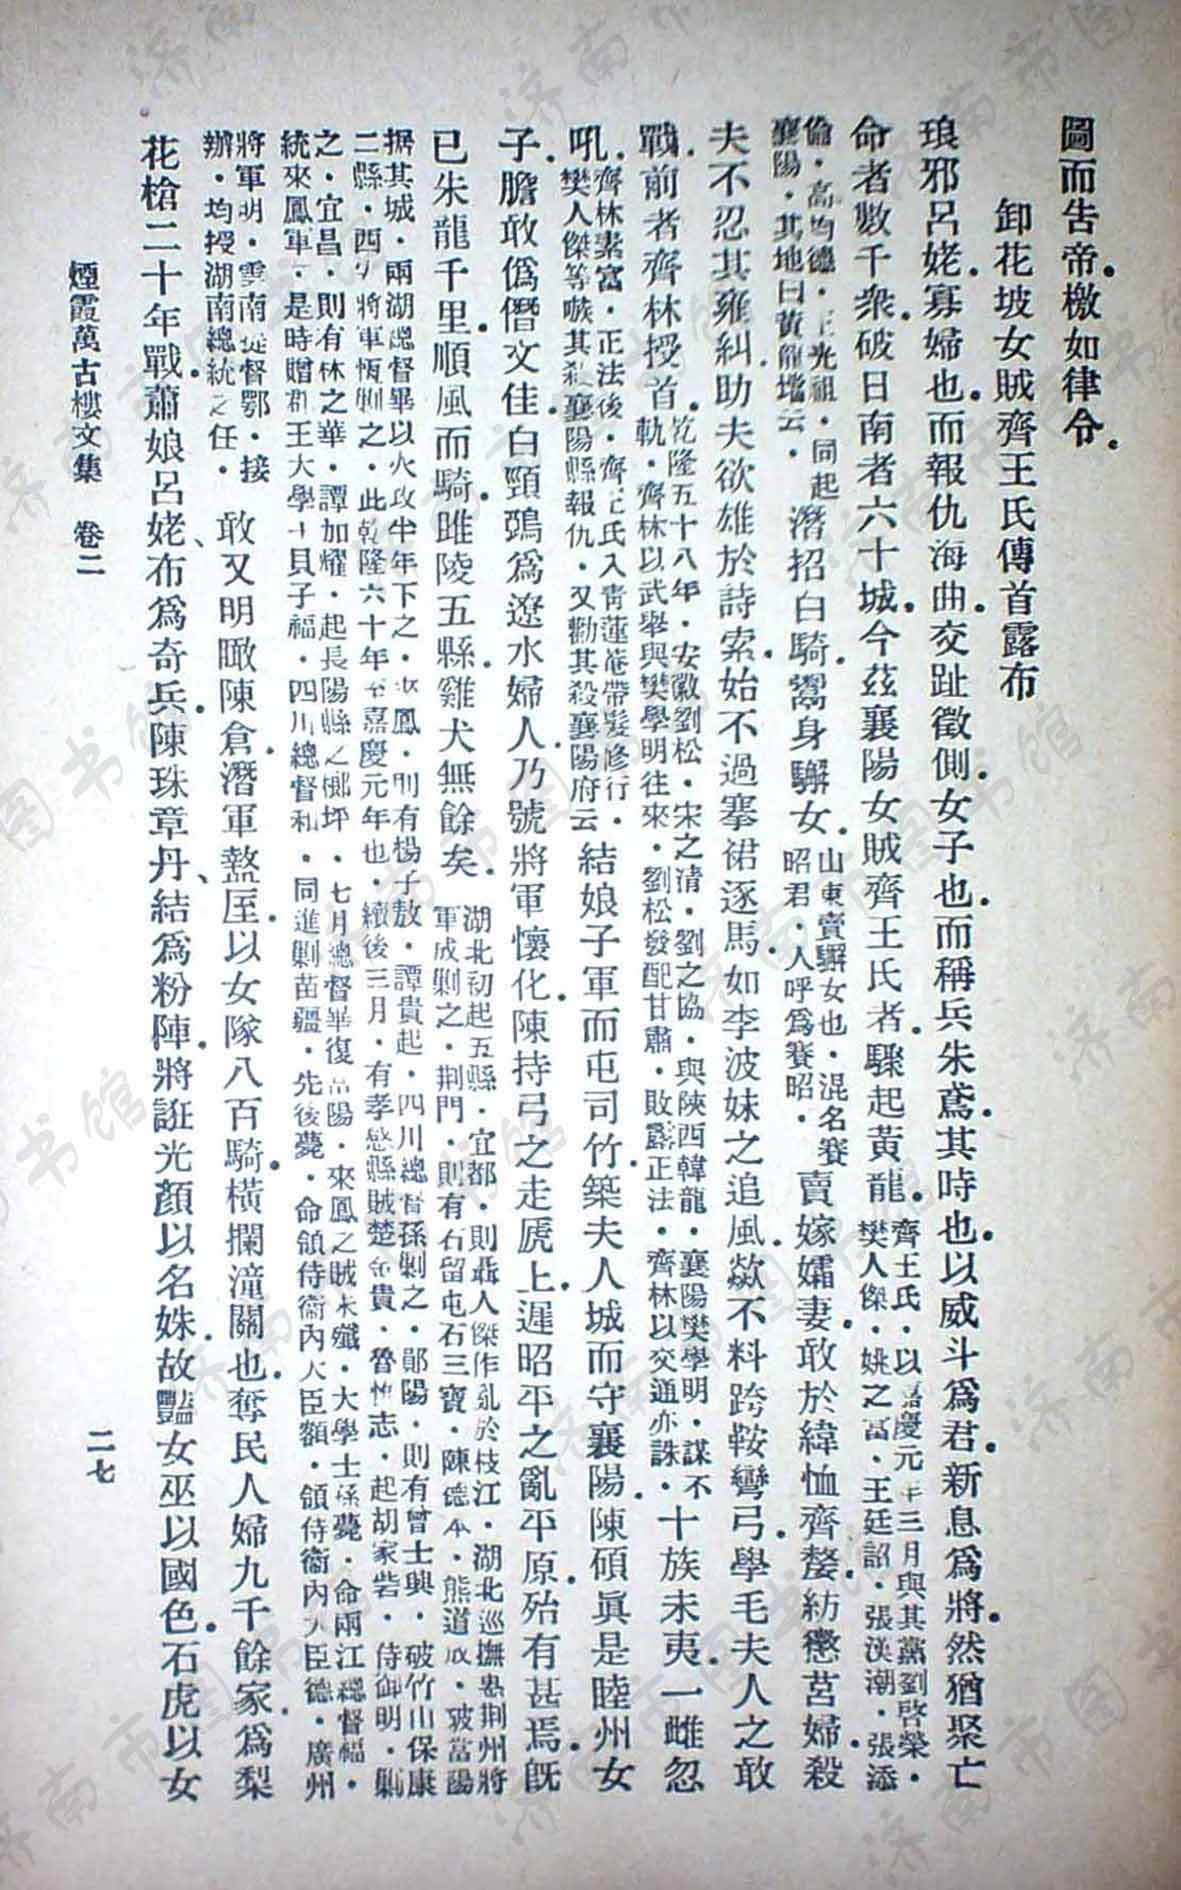 圖而告帝檄如律令。
卸花坡女賊齊王氏傳首露布
琅邪呂姥。寡婦也。而報仇海曲。交趾徵側。女子也。而稱兵朱鳶。其時也。以威斗爲君。新息爲將。然猶聚亡
命者數千衆。破日南者六十城。今茲襄陽女賊齊王氏者。驟起黃龍。
齊王氏・以嘉慶元年三月與其黨劉啓榮・
樊人傑・姚之富・王廷詔・張漢潮・張添
倫・高均德・王光祖・同起
襄陽・其地曰黃龍壋云・
潛招白騎。鬻身騨女。
山東賣騨女也・混名賽
昭君・人呼爲賽昭・
賣嫁孀妻。敢於緯恤齊嫠。紡懲莒婦。殺
夫不忍其雍糾。助夫欲雄於詩索。始不過搴裙逐馬。如李波妹之追風。歘不料跨鞍彎弓。學毛夫人之敢
戰。前者齊林授首。
乾隆五十八年・安徽劉松・宋之清・劉之協・與陝西韓龍・襄陽樊學明・謀不
軌・齊林以武舉與樊學明往來・劉松發配甘肅・敗露正法・齊林以交通亦誅・
十族未夷。一雌忽
吼。
齊林素富・正法後・齊王氏入靑蓮菴帶髮修行・
樊人傑等嗾其殺襄陽縣報仇・又勸其殺襄陽府云
結娘子軍而屯司竹。築夫人城而守襄陽。陳碩眞是睦州女
子。膽敢僞僭文佳。白頸鵶爲遼水婦人。乃號將軍懷化。陳持弓之走虒上。遲昭平之亂平原。殆有甚焉。旣
已朱龍千里。順風而騎。雎陵五縣。雞犬無餘矣。
湖北初起五縣・宜都・則聶人傑作亂於枝江・湖北巡撫惠荆州將
軍成剿之・荆門・則有石留屯石三寶・陳德本・熊道成・破當陽
据其城・兩湖總督畢以火攻半年下之・來鳳・則有楊子敖・譚貴起・四川總督孫剿之・鄖陽・則有曾士興・破竹山保康
二縣・西安將軍恆剿之・此乾隆六十年至嘉慶元年也・續後三月・有孝感縣賊楚金貴・魯惟志・起胡家砦・侍御明・剿
之・宜昌・則有林之華・譚加耀・起長陽縣之榔坪・七月總督畢復當陽・來鳳之賊未殲・大學士孫薨・命兩江總督福・
統來鳳軍・是時贈郡王大學士貝子福・四川總督和・同進剿苗疆・先後薨・命領侍衞內大臣額・領侍衞內大臣德・廣州
將軍明・雲南提督鄂・接
辦・均授湖南總統之任・
敢又明瞰陳倉。潛軍盩厔。以女隊八百騎。橫攔潼關也。奪民人婦九千餘家。爲梨
花槍二十年戰。蕭娘、呂姥。布爲奇兵。陳珠、章丹。結爲粉陣。將誑光顏以名姝。故豔女巫以國色。石虎以女
煙霞萬古樓文集　卷二
二七